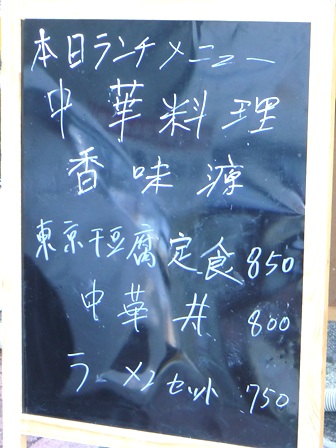 本日ランチメニュー
中華料理
香味源
東京干豆腐定食 850
中華丼 800
ラーメンセット 750